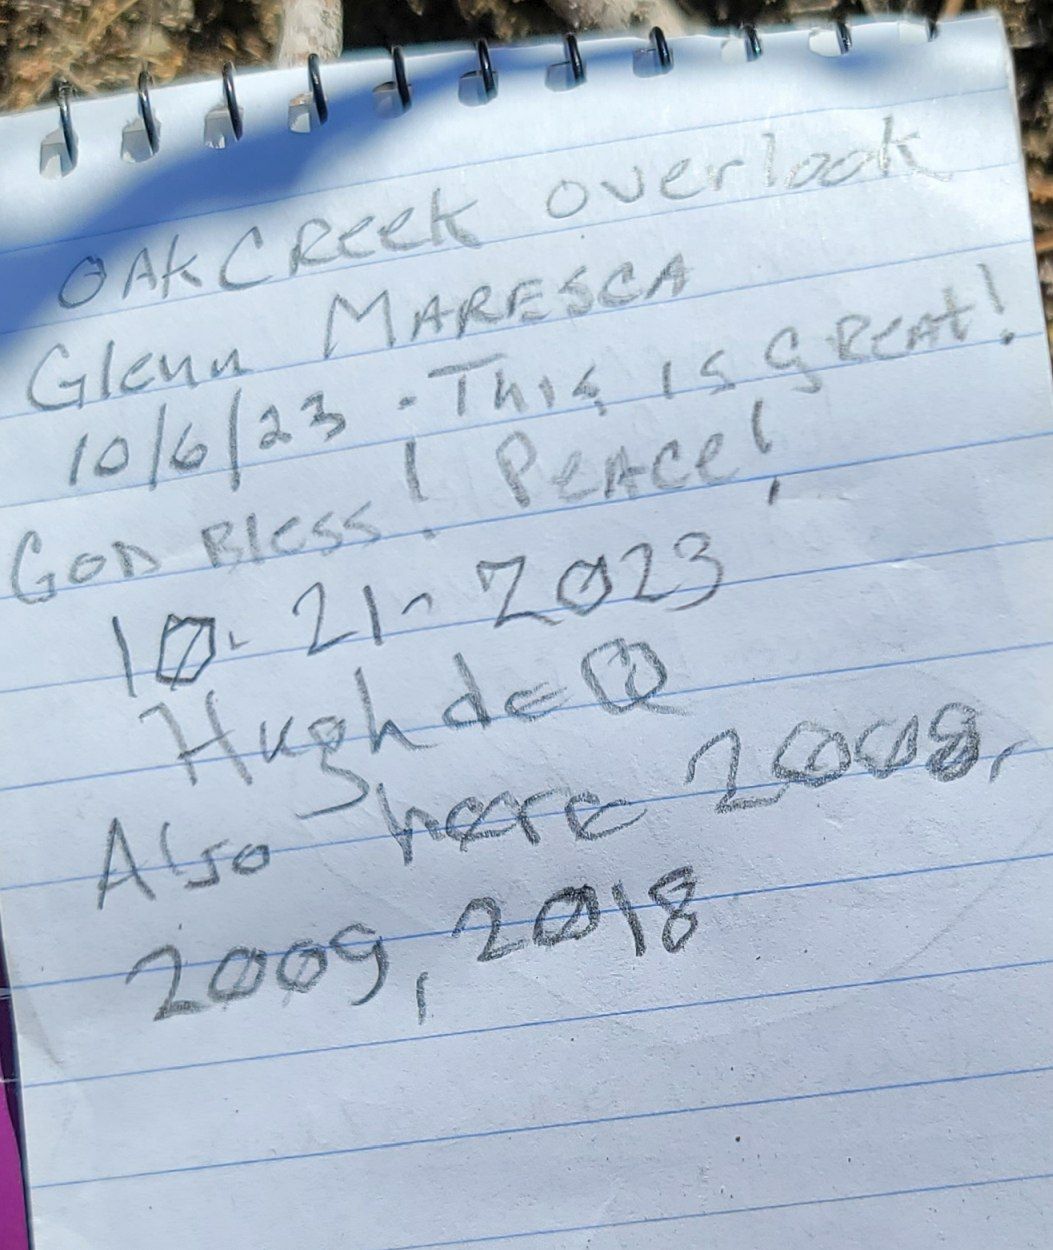 OAK CReek overlook
Glenn MARESCA
10/6/23 . This is great!
GOD Bless! Peace!
10-21-2023
Hugh de Q
Also here 2008,
2009, 2018